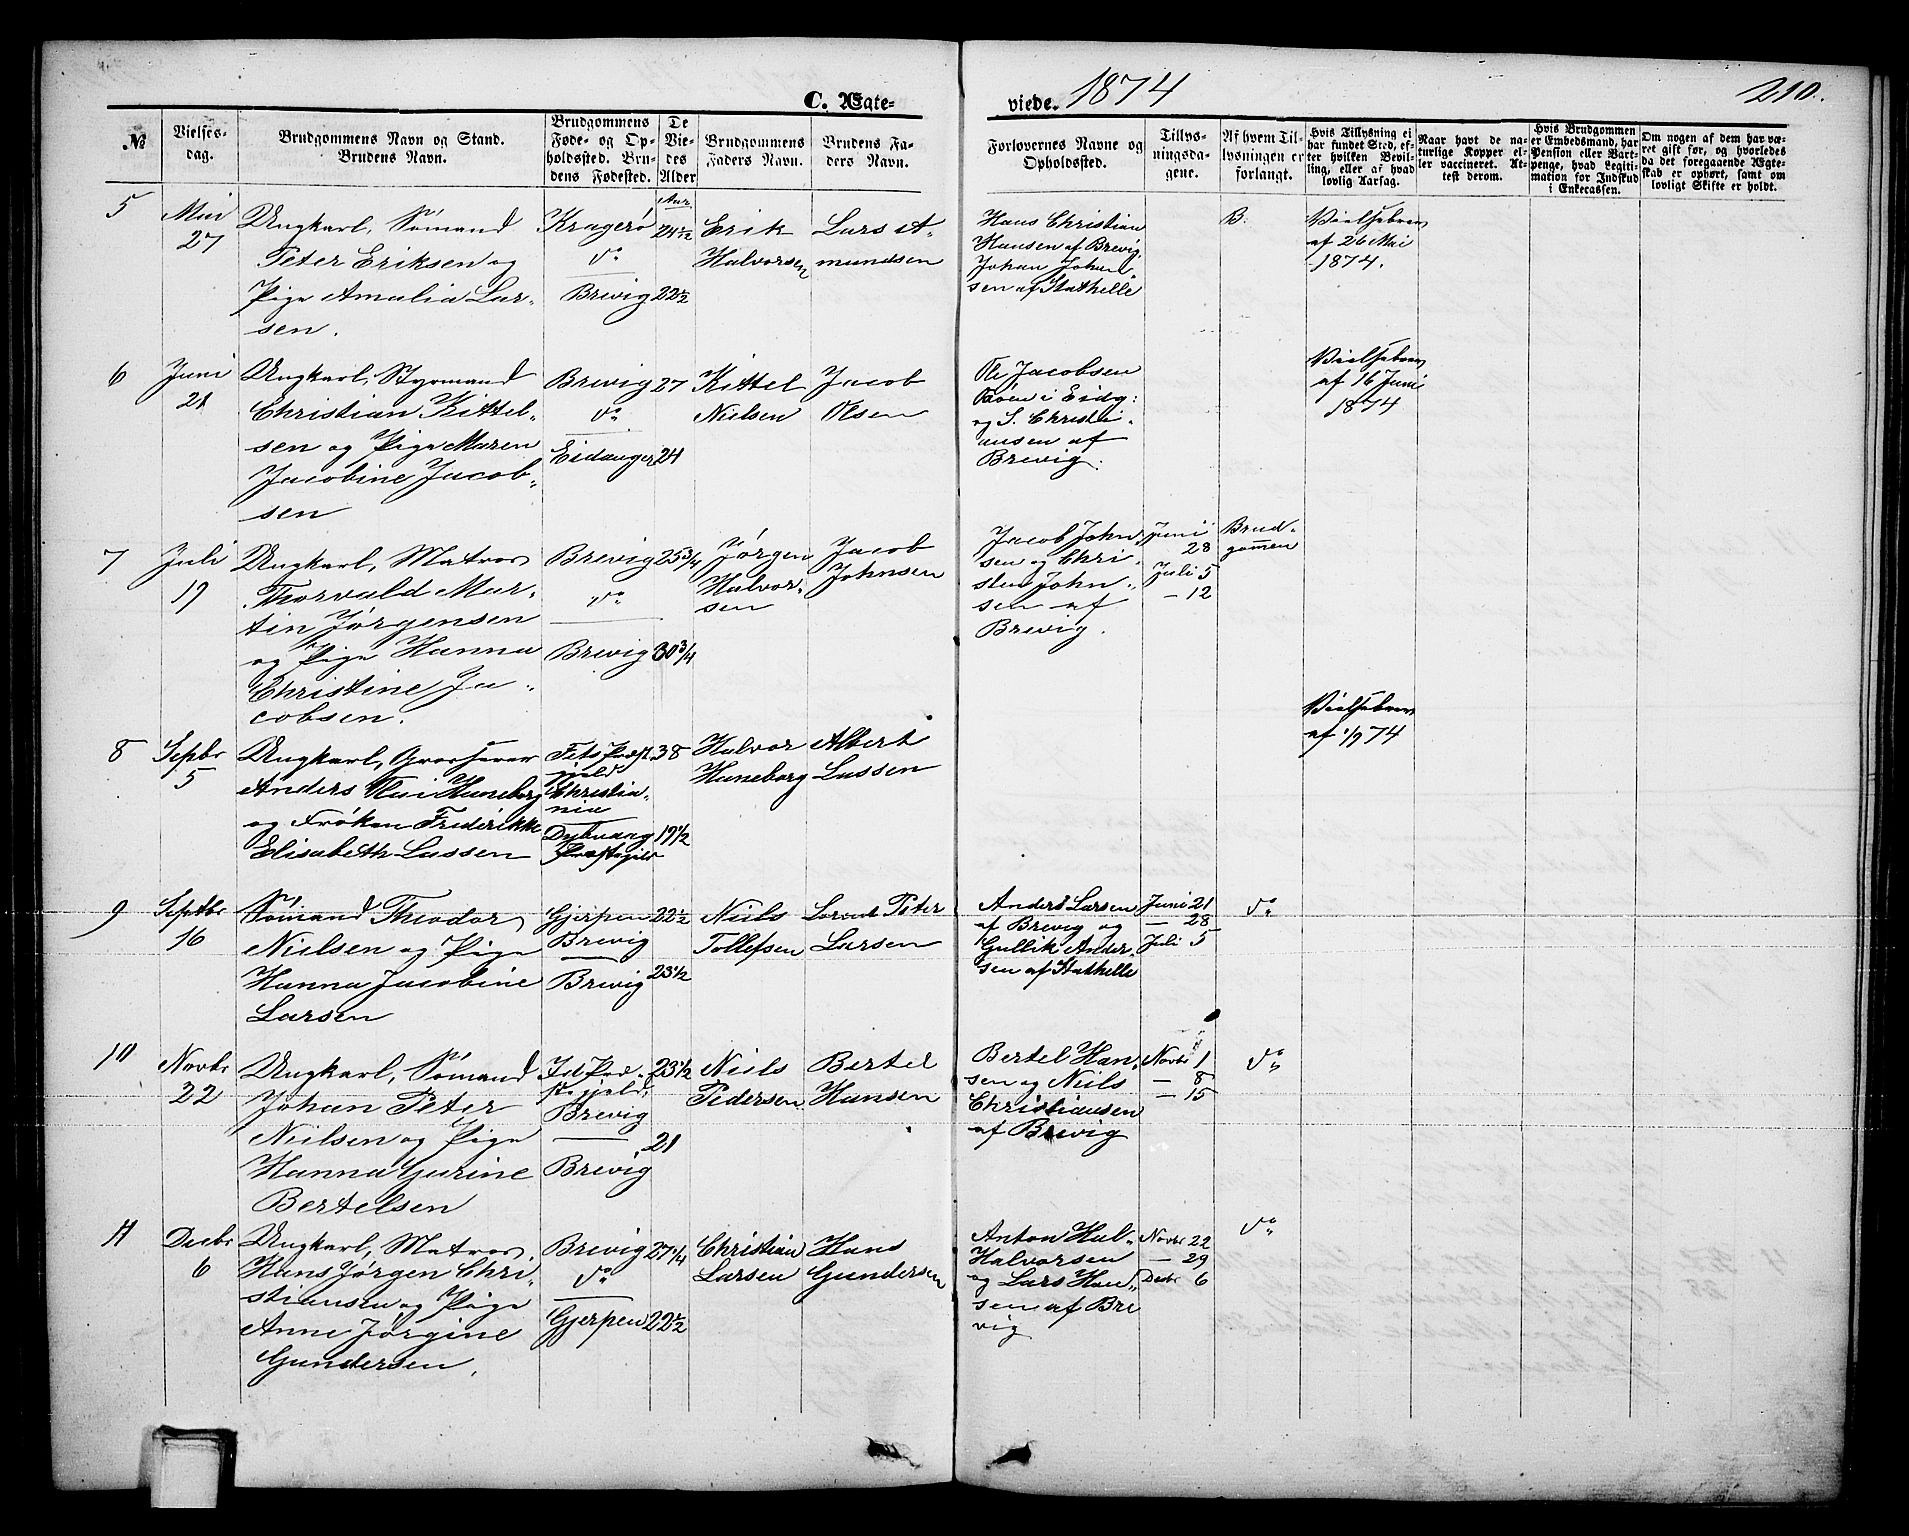 C. Ægte-
viede. 1874
210.
№
Vielses-
dag.
Brudgommens Navn og Stand.
Brudens Navn.
Brudgommens
Føde- og Op-
holdssted. Bru-
dens Fødested.
De
Vie-
des
Alder
Brudgommens
Faders Navn.
Brudens Fa-
ders Navn.
Forlovernes Navne og
Opholdssted.
Tillys-
ningsda-
gene.
Af hvem Til-
lysningen er
forlangt.
Hvis Tillysning ei
har fundet Sted, ef-
ter hvilken Bevil-
ling, eller af hvad
lovlig Aarsag.
Naar havt de na-
turlige Kopper el-
ler vaccineret. At-
test derom.
Hvis Brudgommen
er Embedsmand, har
Pension eller Vart-
penge, hvad Legiti-
mation for Indskud
i Enkecassen.
Om nogen af dem har væ-
ret gift før, og hvorledes
da det foregaaende Ægte-
skab er ophørt, samt om
lovligt Skifte er holdt.
5
Mai
27
Ungkarl, Sømand
Peter Eriksen og
Pige Amalia Lar-
sen.
Kragerø
do
Brevig
Aar.
24 1/2
22 1/2
Erik
Halvorsen
Lars A-
mundsen
Hans Christian
Hansen af Brevig.
Johan Johan-
sen af Stathelle
B.
Vielsebrev
af 26 Mai
1874.
6
Juni
21
Ungkarl, Styrmand
Christian Kittel-
sen og Pige Maren
Jacobine Jacob-
sen
Brevig
do
Eidanger
27
24
Kittel
Nielsen
Jacob
Olsen
Ole Jacobsen
i Eidg:
og S. Christi-
ansen af
Brevig.
Vielsebrev
af 16 Juni
1874
7
Juli
19
Ungkarl, Matros
Thorvald Mar-
tin Jørgensen
og Pige Hanna
Christine Ja-
cobsen.
Brevig
do
Brevig
25 3/4
30 3/4
Jørgen
Halvor-
sen
Jacob
Johnsen
Jacob John-
sen og Chri-
sten John-
sen af
Brevig.
Juni
28
Juli 5
— 12
Brud-
gommen
8
Septbr
5
Ungkarl, Grosserer
Anders Huneborg
og Frøken Frederikke
Elisabeth Lassen
Fets Præst-
gjeld
Christia-
nia
Dybvaag
Præstegjeld
38
19 1/2
Halvor
Huneborg
Albert
Lassen
Vielsebrev
af 1/9 74
9
Septbr
16
Sømand Theodor
Nielsen og Pige
Hanna Jacobine
Larsen
Gjerpen
Brevig
Brevig
22 1/2
23 1/2
Niels
Tollefsen
Lorents Peter
Larsen
Anders Larsen
af Brevig og
Gullik Ander-
sen af Stathelle
Juni 21
— 28
Juli 5
do
10
Novbr
22
Ungkarl, Sømand
Johan Peter
Nielsen og Pige
Hanna Gurine
Bertelsen
Id Præ-
stegjeld,
Brevig
Brevig
23 1/2
21
Niels
Pedersen
Bertel
Hansen
Bertel Han-
sen og Niels
Christiansen
af Brevig
Novbr 1
— 8
— 15
do
11
Decbr
6
Ungkarl, Matros
Hans Jørgen Chri-
stiansen og Pige
Anne Jørgine
Gundersen.
Brevig
do
Gjerpen
27 1/4
22 1/2
Christian
Larsen
Hans
Gundersen
Anton Hal-
Halvorsen
og Lars Han-
sen af Bre
vig
Novbr 22
— 29
Decbr 6
do